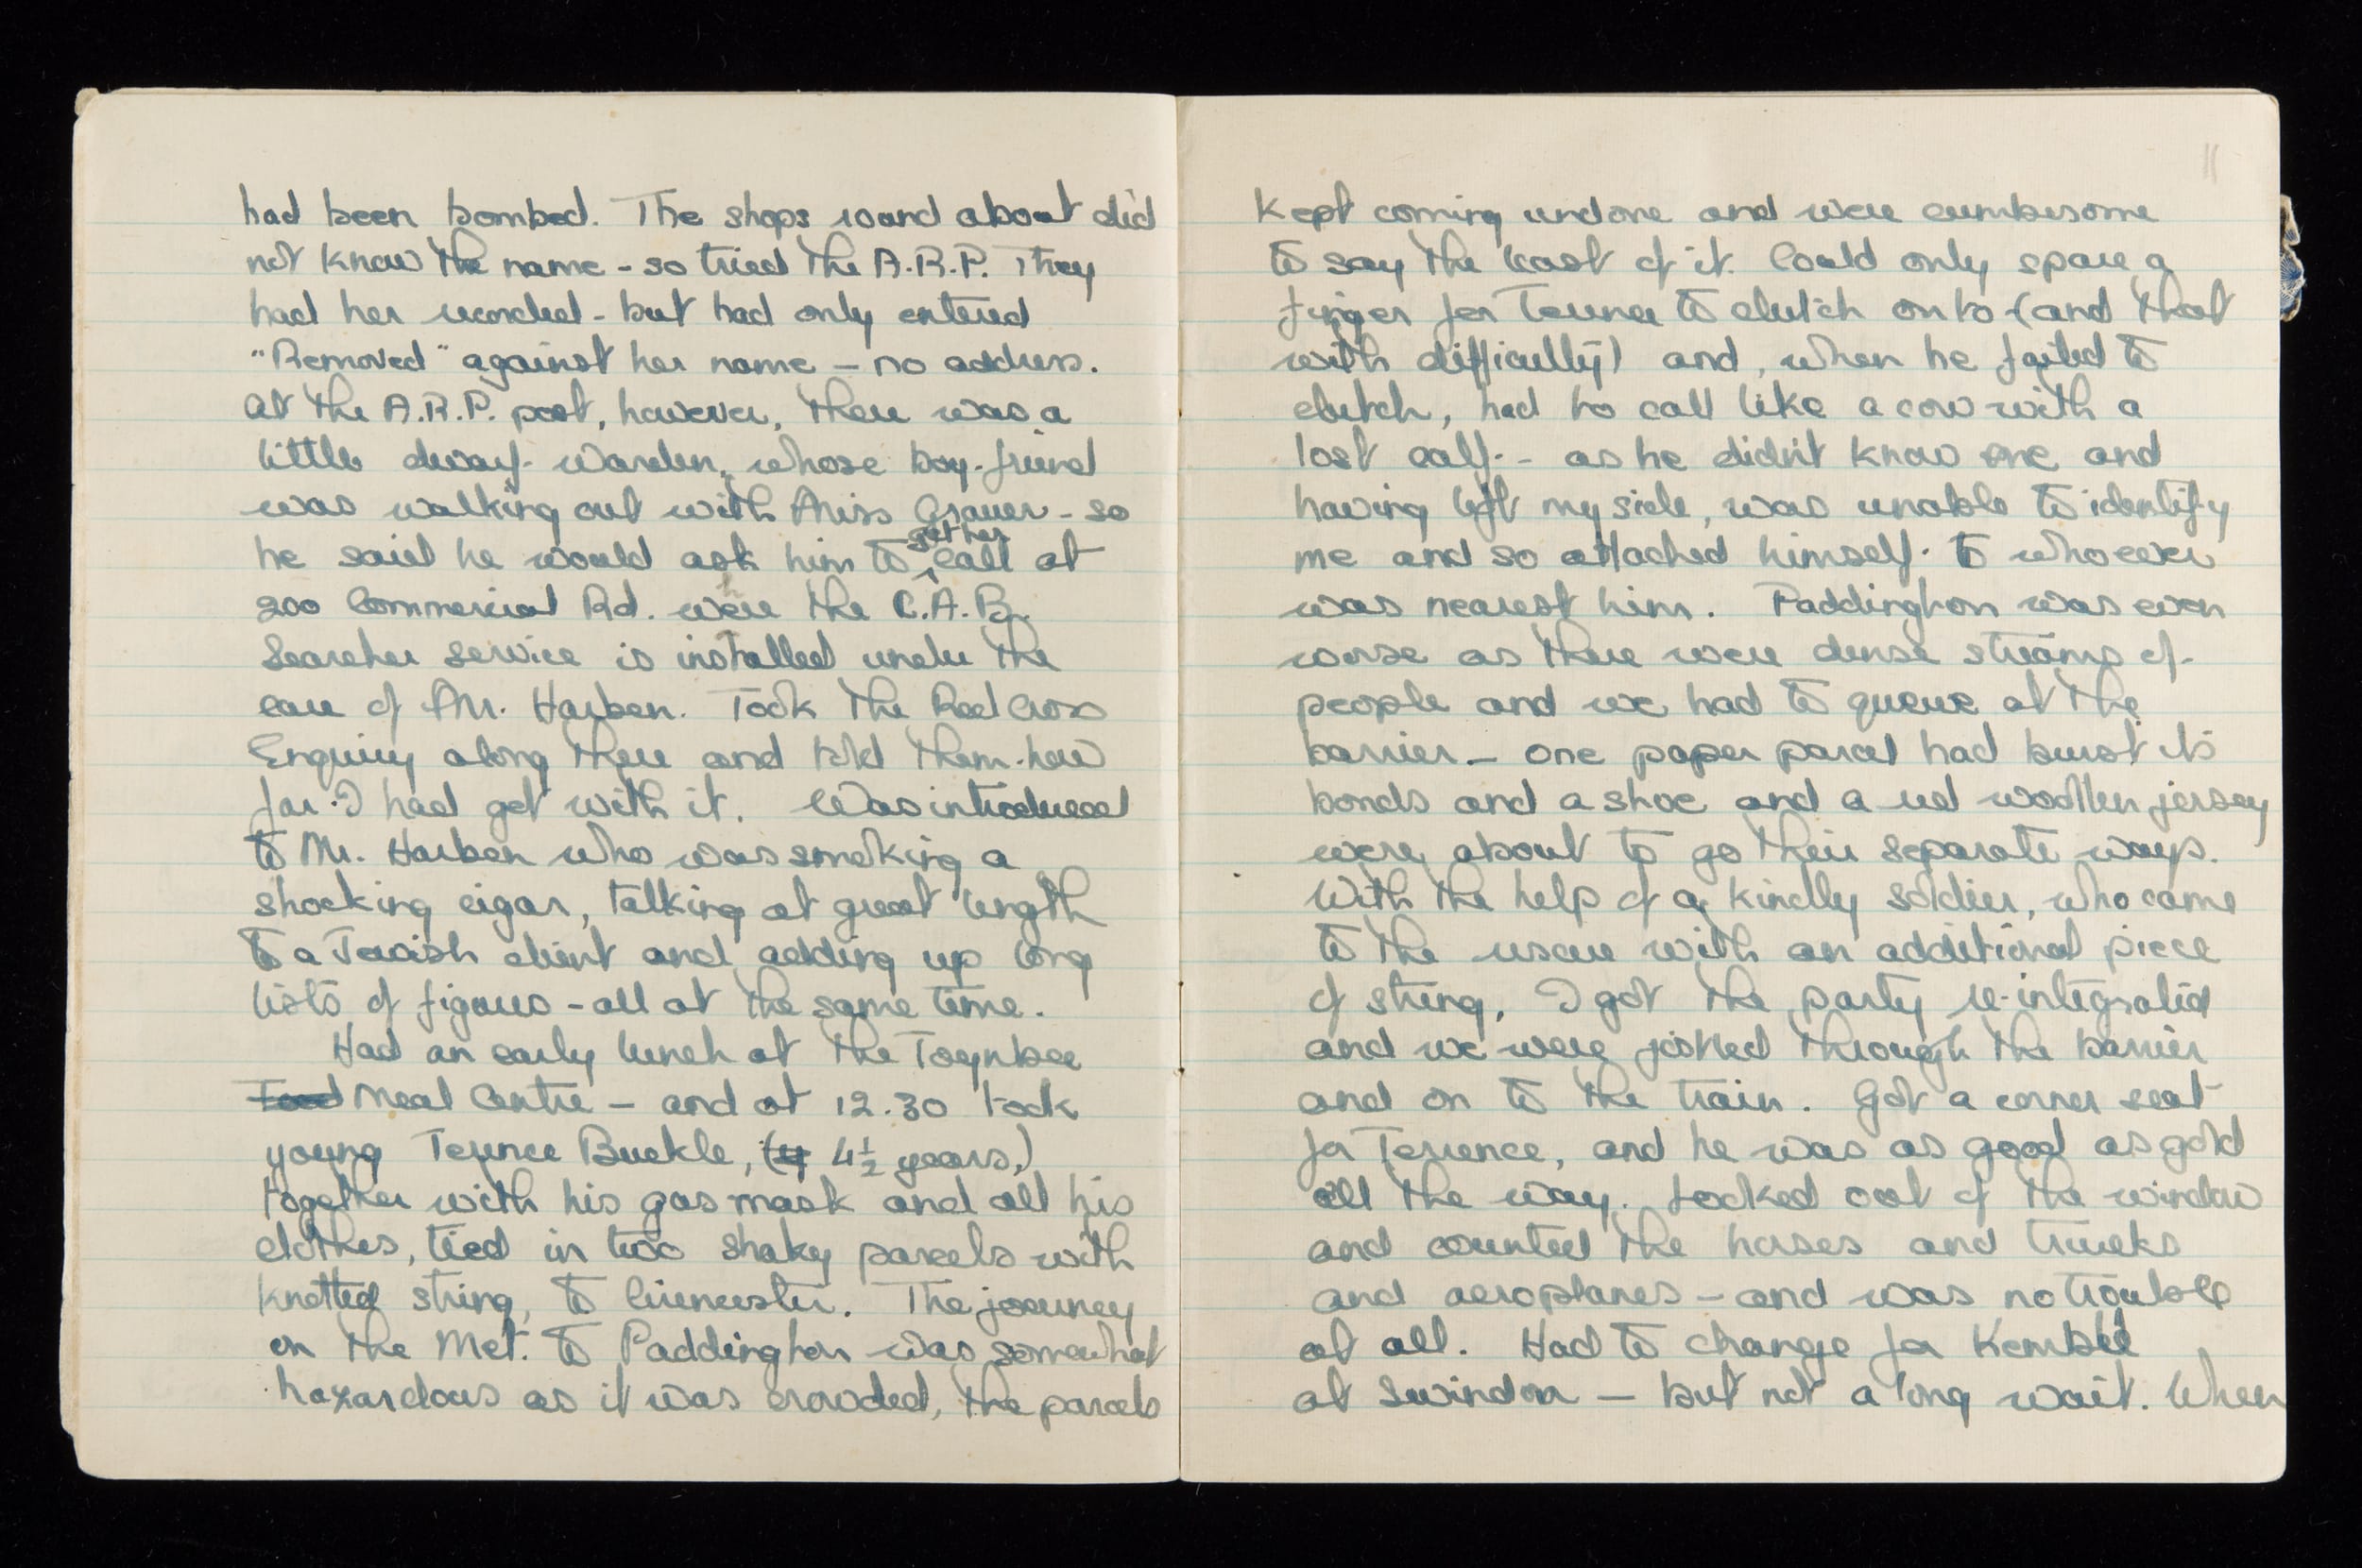 had been bombed. The shops round about did
not know the name - so tried the A.R.P. They
had her recorded - but had only entered
"Removed" against her name - no address.
At the A.R.P. post, however, there was a
little dwarf warden, whose boy-friend
was walking out with Miss Grauer - so
get her
he said he would ask him to call at
200 Commercial Rd. where the C.A.B.
Searcher service is installed under the
care of Mr. Harben. Took the Red Cross
Enquiry along there and told them how
far I had got with it. Was introduced
to Mr. Harben who was smoking a
shocking cigar, talking at great length
to a Jewish client and adding up long
lists of figures - all at the same time.
Had an early lunch at the Toynbee
Food Meal Centre - and at 12.30 took
young Terence Buckle, (4 4½ years,)
together with his gas mask and all his
clothes, tied in two shaky parcels with
knotted string, to Cirencester. The journey
on the Met. to Paddington was somewhat
hazardous as it was crowded, the parcels
11
kept coming undone and were cumbersome
to say the least of it. Could only spare a
finger for Terence to clutch on to - (and that
with difficulty) and, when he failed to
clutch, had to call like a cow with a
lost calf - as he didn't know me and
having left my side, was unable to identify
me and so attached himself to whoever
was nearest him. Paddington was even
worse as there were dense streams of
people and we had to queue at the
barrier - one paper parcel had burst its
bonds and a shoe and a red woollen jersey
were about to go their separate ways.
With the help of a kindly soldier, who came
to the rescue with an additional piece
of string, I got the party re-integrated
and we were jostled through the barrier
and on to the train. Got a corner seat
for Terence, and he was as good as gold
all the way. Looked out of the window
and counted the horses and trucks
and aeroplanes - and was no trouble
at all. Had to change for Kemble
at Swindon - but not a long wait. When